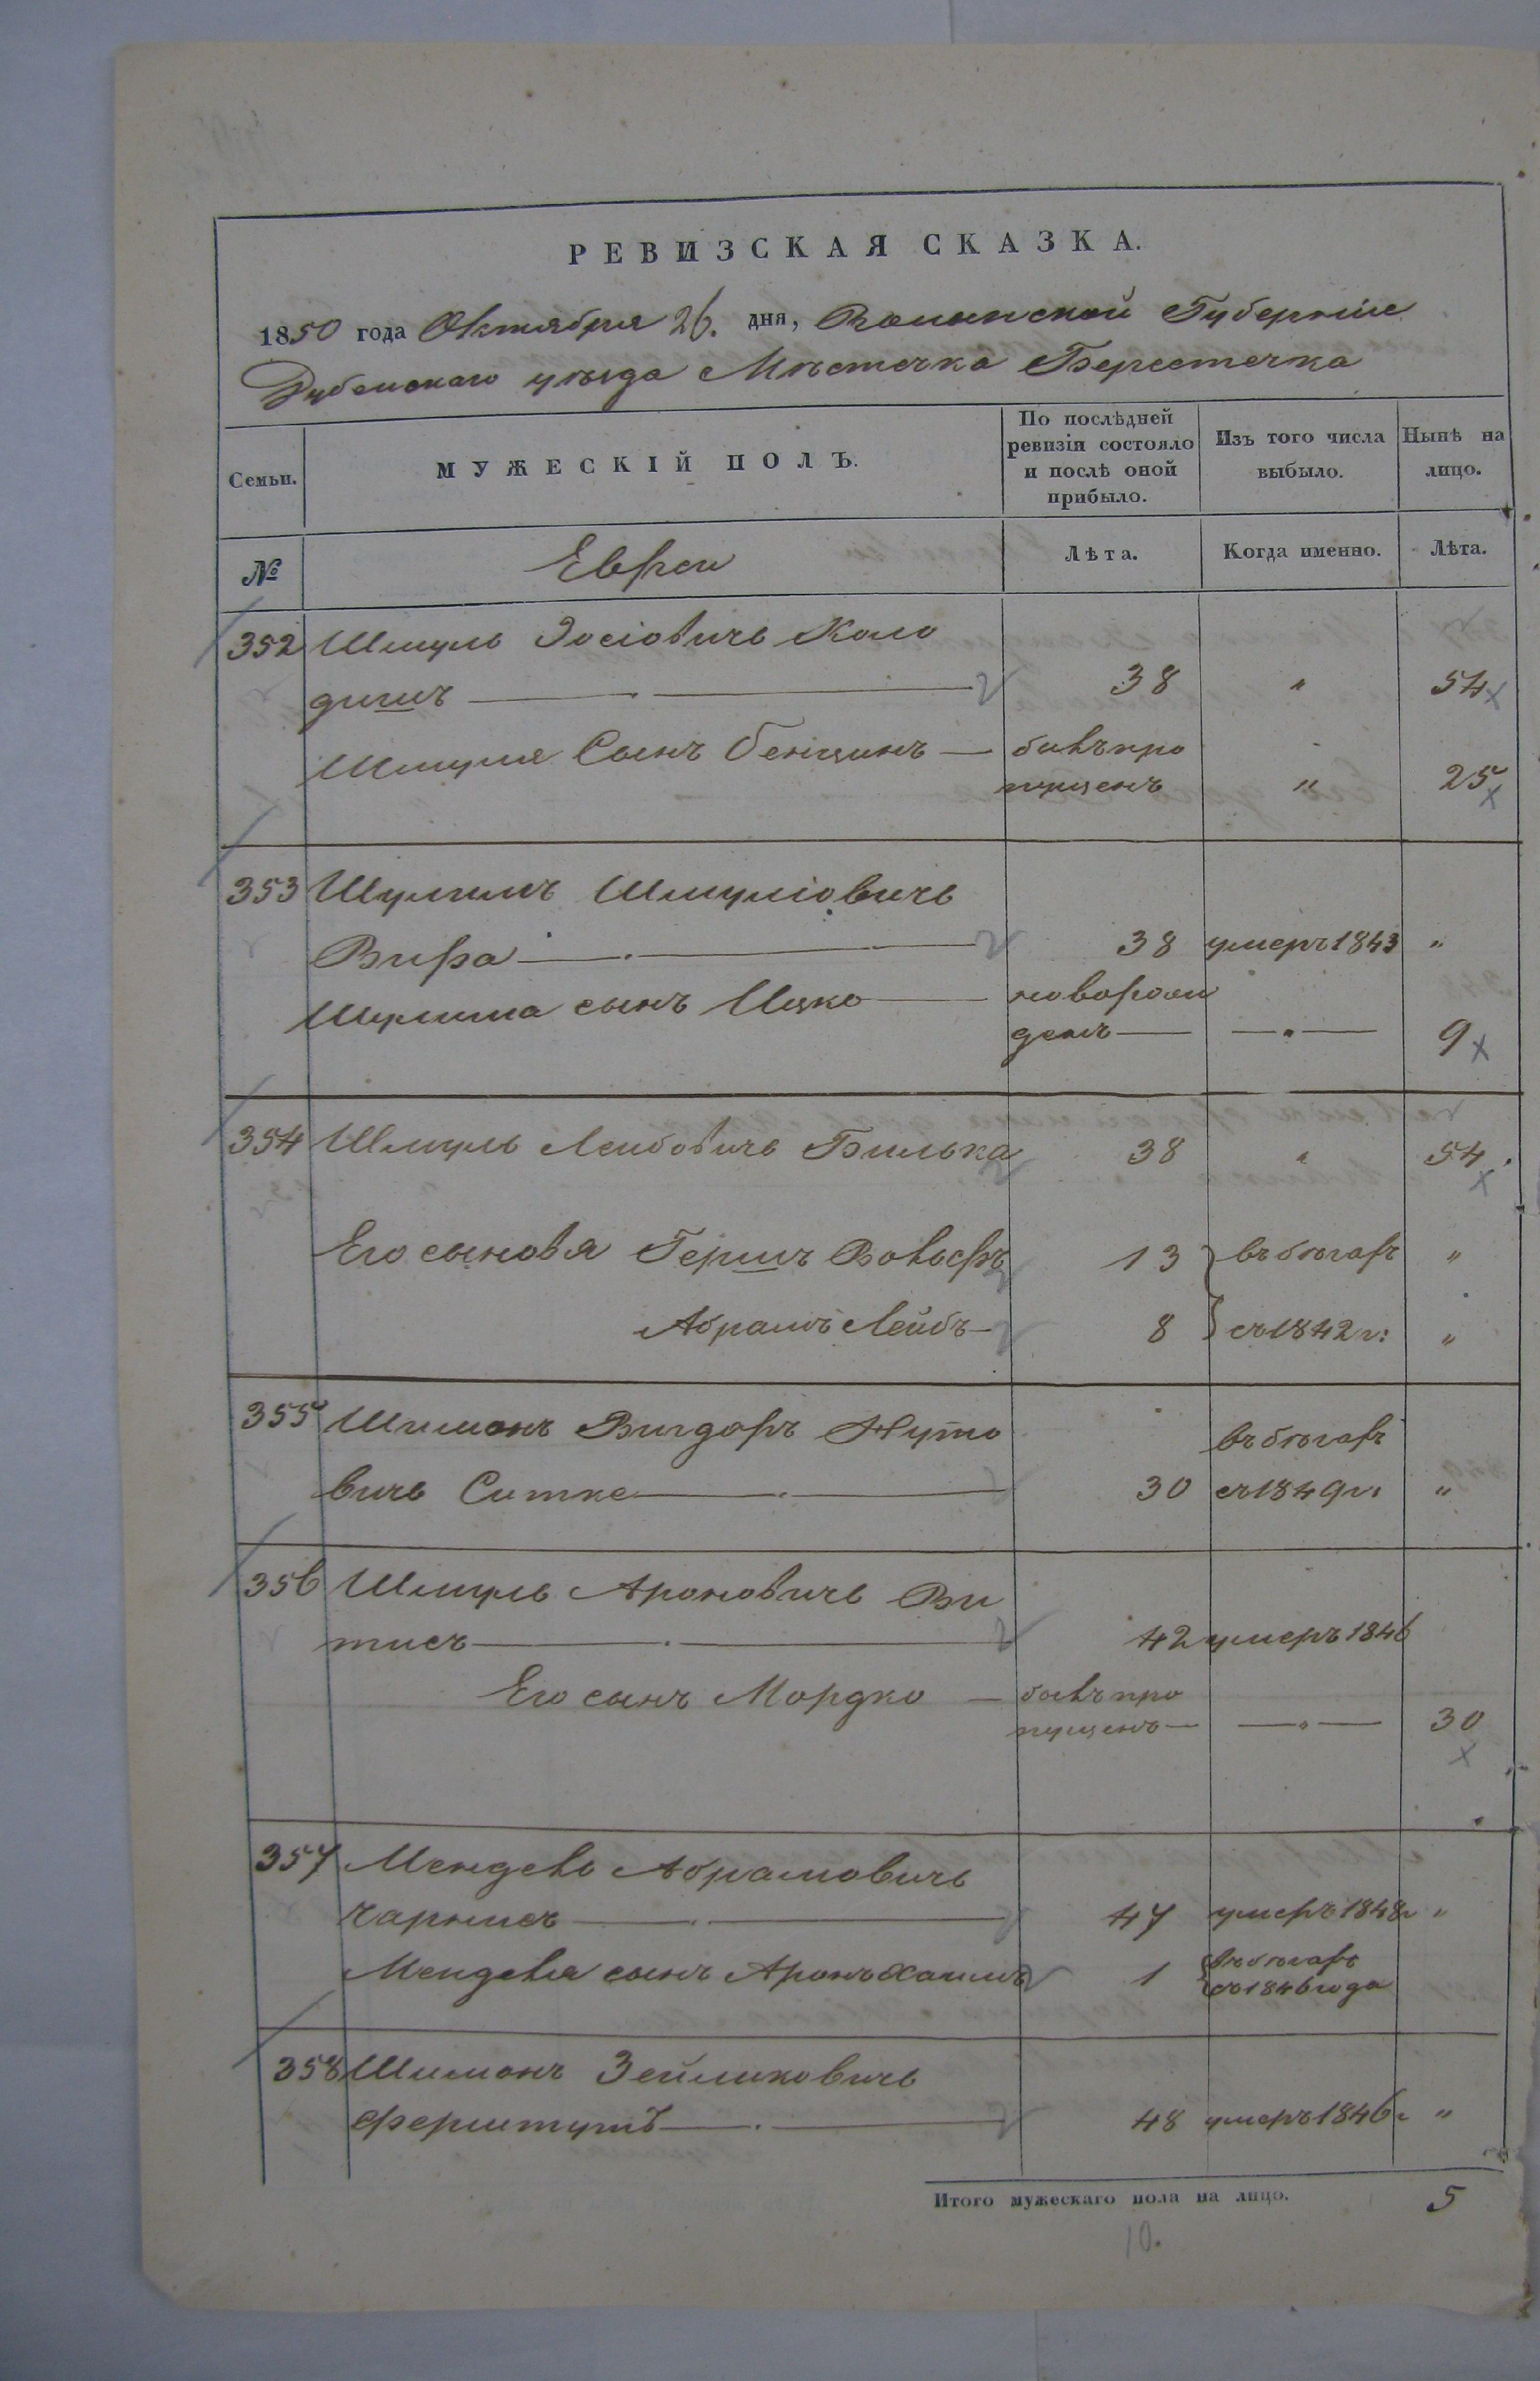 РЕВИЗСКАЯ СКАЗКА.
1850 года Октября 26. дня, Волынской Губерніи
Дубенскаго уѣзда Мѣстечка Берестечка
Семьи.
МУЖЕСКІЙ ПОЛЪ.
По послѣдней
ревизіи состояло
и послѣ оной
прибыло.
Изъ того числа
выбыло.
Нынѣ на
лицо.
№
Евреи
Лѣта.
Когда именно.
Лѣта.
352 Шмуль Іосіовичь Коло
дишъ 38 " 54
Шмуля Сынъ Бенционъ былъ про
пущенъ " 25
353 Шулимъ Шмуліовичь
Вифа 38 умеръ 1843 "
Шулима сынъ Ицко новорож
денъ " 9
354 Шмуль Лейбовичь Билька 38 " 54
Его сыновя Гершъ Вольфъ 13 въ бѣгахъ "
Абрамъ Лейбъ 8 съ 1842 г: "
355 Шимонъ Вигдоръ Нуто въ бѣгахъ
вичь Ситке 30 съ 1849 г: "
356 Шмуль Ароновичь Ви
тисъ 42 умеръ 1846
Его сынъ Мордко былъ про
пущенъ " 30
357 Мендель Абрамовичь
Чарнисъ 47 умеръ 1848 г "
Менделя сынъ Аронъ Хаимъ 1 въ бѣгахъ
съ 1846 года
358 Шимонъ Зейликовичь
Ферштутъ 48 умеръ 1846 г "
Итого мужескаго пола на лицо. 5
10.